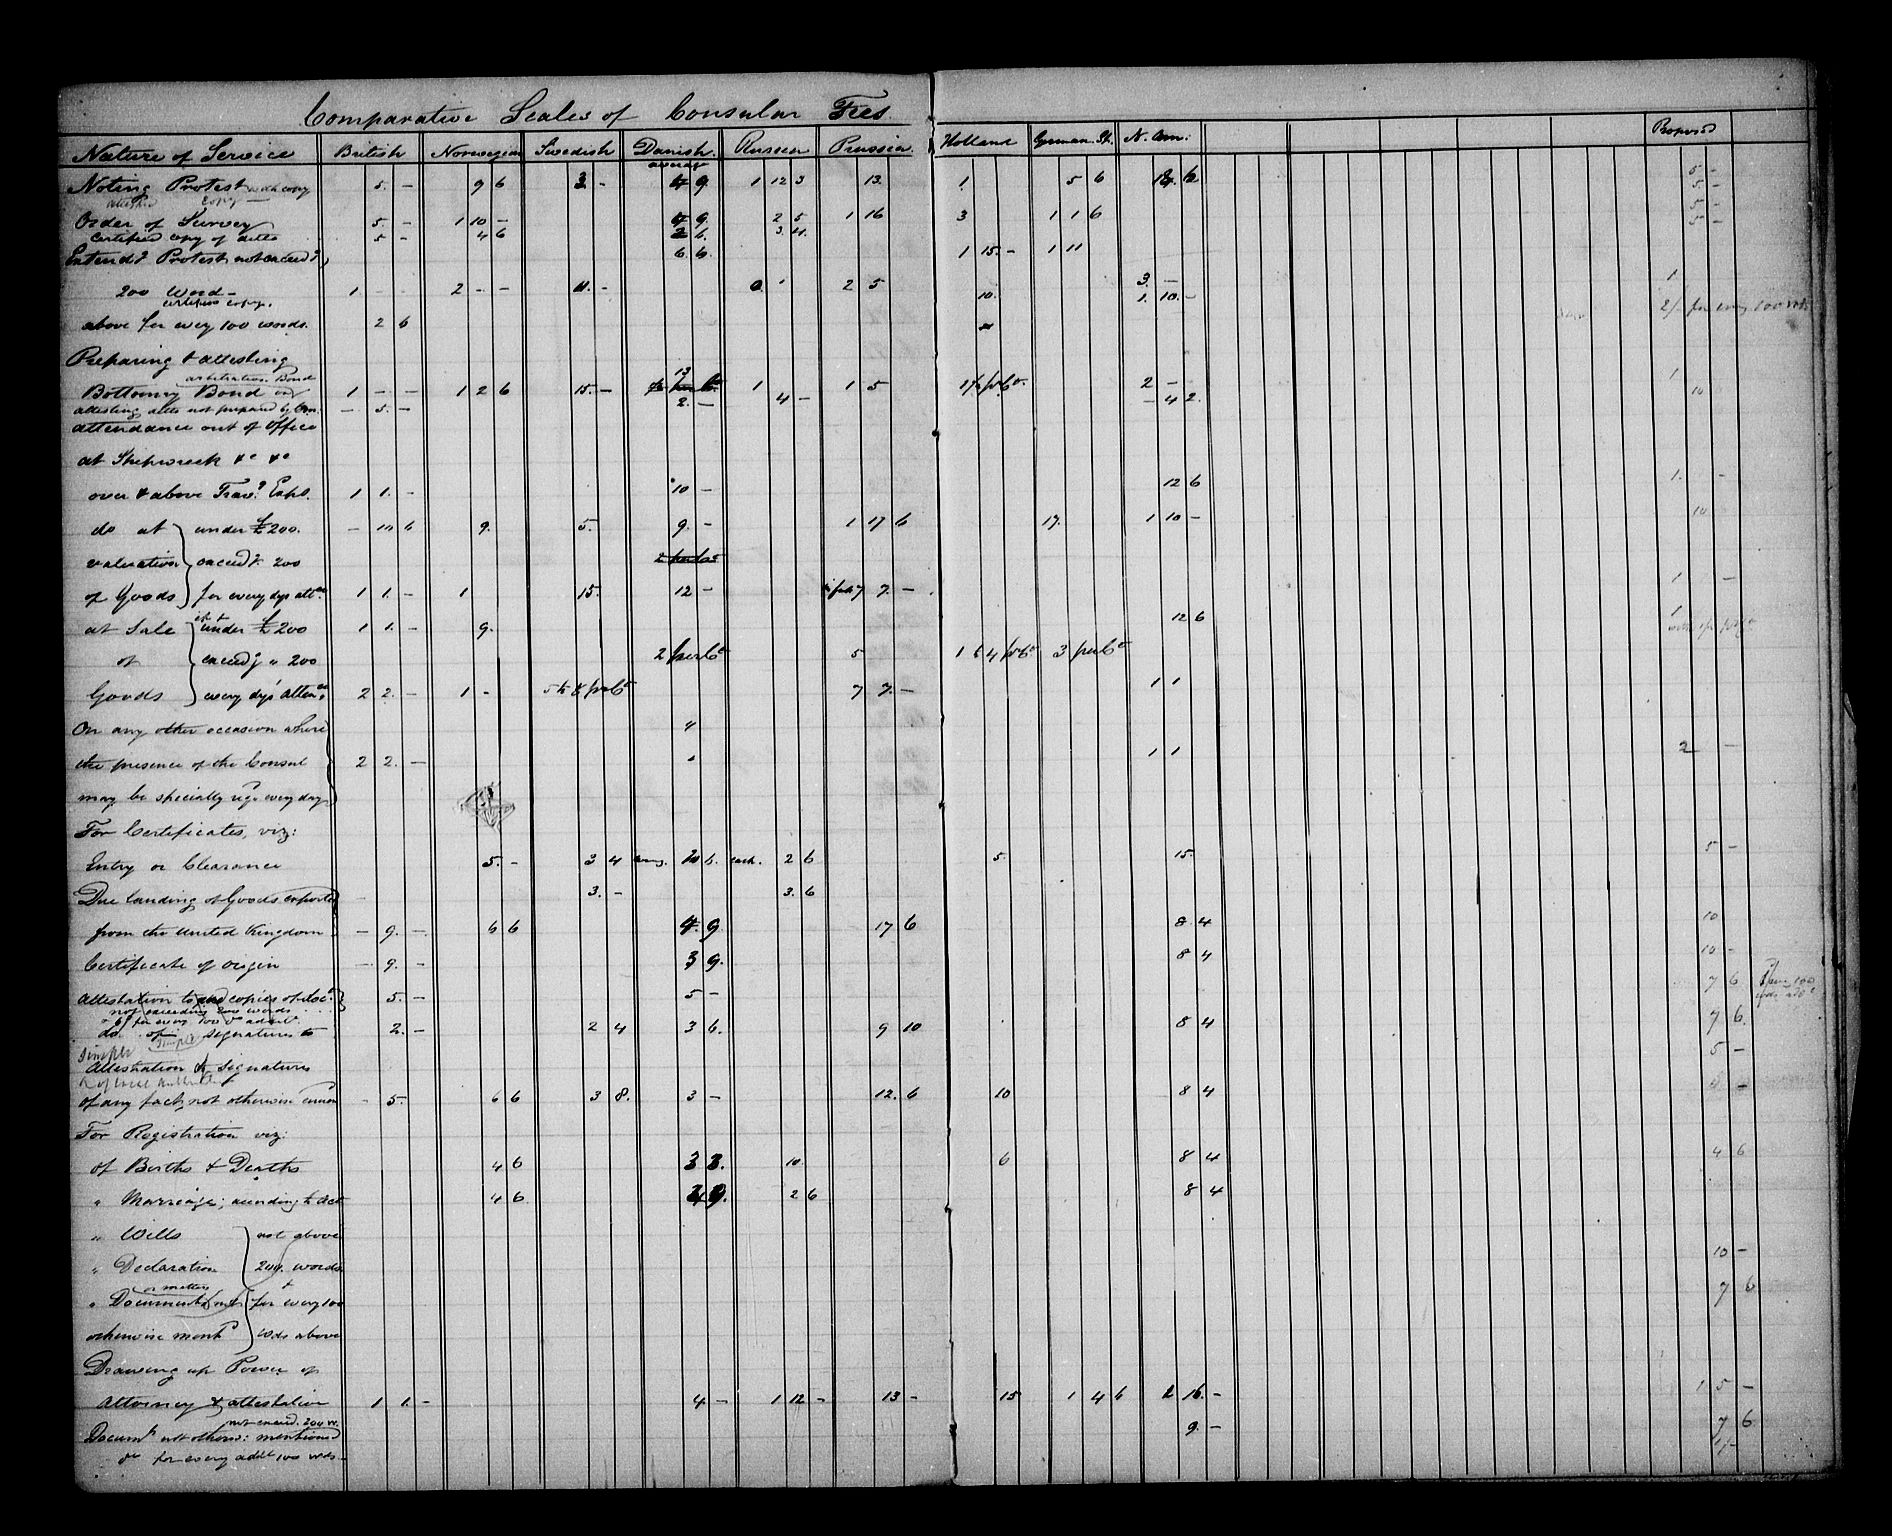 Comparative Scales of Consular Fees
Nature of Service British Norwegian Swedish Danish Russia Prussia Holland German St. N. Am: Proposed
average
Noting Protest with copy 5. - 9 6 3 - 9. 1 12 3 13. 1. 5 6 5 -
copy - 5 -
Order of Survey 5. - 1 10 - 9. 2 5 1 16 3 1 1 6 5 -
certified copy of ditto 5 - 4 6 6. 5 -
Extendg Protest not exceedg 6. 6. 1 15. - 1 11
200 Word - 1 - - 2 - - - 2 5 3. - 1
certified copy. 10. 1. 10. -
above for every 100 words. 2 6 2/- for every 100 wds
Preparing & attesting
arbitration Bond 13
Bottomry Bond 1 - - 1 2 6 15. - 1 1 5 2 - 1
attesting ditto not prepared by Con: - 5. - 2. - 4 - - 4 2. 10
attendance out of Office
at Shipwreck &c &c
over & above Travg Exps. 1 1. - 10 - 12 6 1. -
do at under £200. - 10. 6 9. 5. 9. - 1 17 6 17. 1 10 - 10
valuation exceedg 200 2 per Ct
of Goods for every dys attce 1 1. - 1 15. 12 - 7 7. - 1 -
at Sale under £200 1 1. - 9. 12 6 1
of exceedg " 200 2 per Ct 5 1 to 4 pr Ct 3 per Ct
Goods every dys' attence 2 2. - 1 - 5 to 8 pr Ct 7 7. - 1 1
On any other occasion where "
the presence of the Consul 2 2. - 1 1 2 -
may be specially reqd every day
For Certificates, viz:
Entry or Clearance 5. - 3 4 6. each. 2 6 5. 15. 5 -
Due landing of Goods exported - 3. - 3. 6
from the United Kingdom - 9. - 6 6 4. 9. 17 6 8 4 10
Certificate of origin - 9. - 3 9. 8 4 10 -
Attestation to copies of doct. 5. - 5 - 7 6
not exceeding 200 words
for every 100 do addl
do. signatures to 2. - 2 4 3 6. 9 10 8 4 7 6.
Simple
Attestation of signatures 5 -
of any fact, not otherwise - 5. 6 6 3 8. 3 - 12. 6 10 8 4
For Registration viz:
of Births & Deaths 4 6 3 3. 10. 6 8 4 4 6
" Marriage; according to Act 4 6 2 6 8 4
" Wills not above
" Declaration 200. words. 10 -
or matters &
" Documents not for every 100 7 6
otherwise mentd wds above
Drawing up Power of
Attorney & attestation 1 1. - 4. - 1 12 - 13 - 15 1 4 6 16. - 1 5 -
not exceed. 200 w.
Documts not otherw: mentioned 9. - 7 6
do for every addl 100 wds.